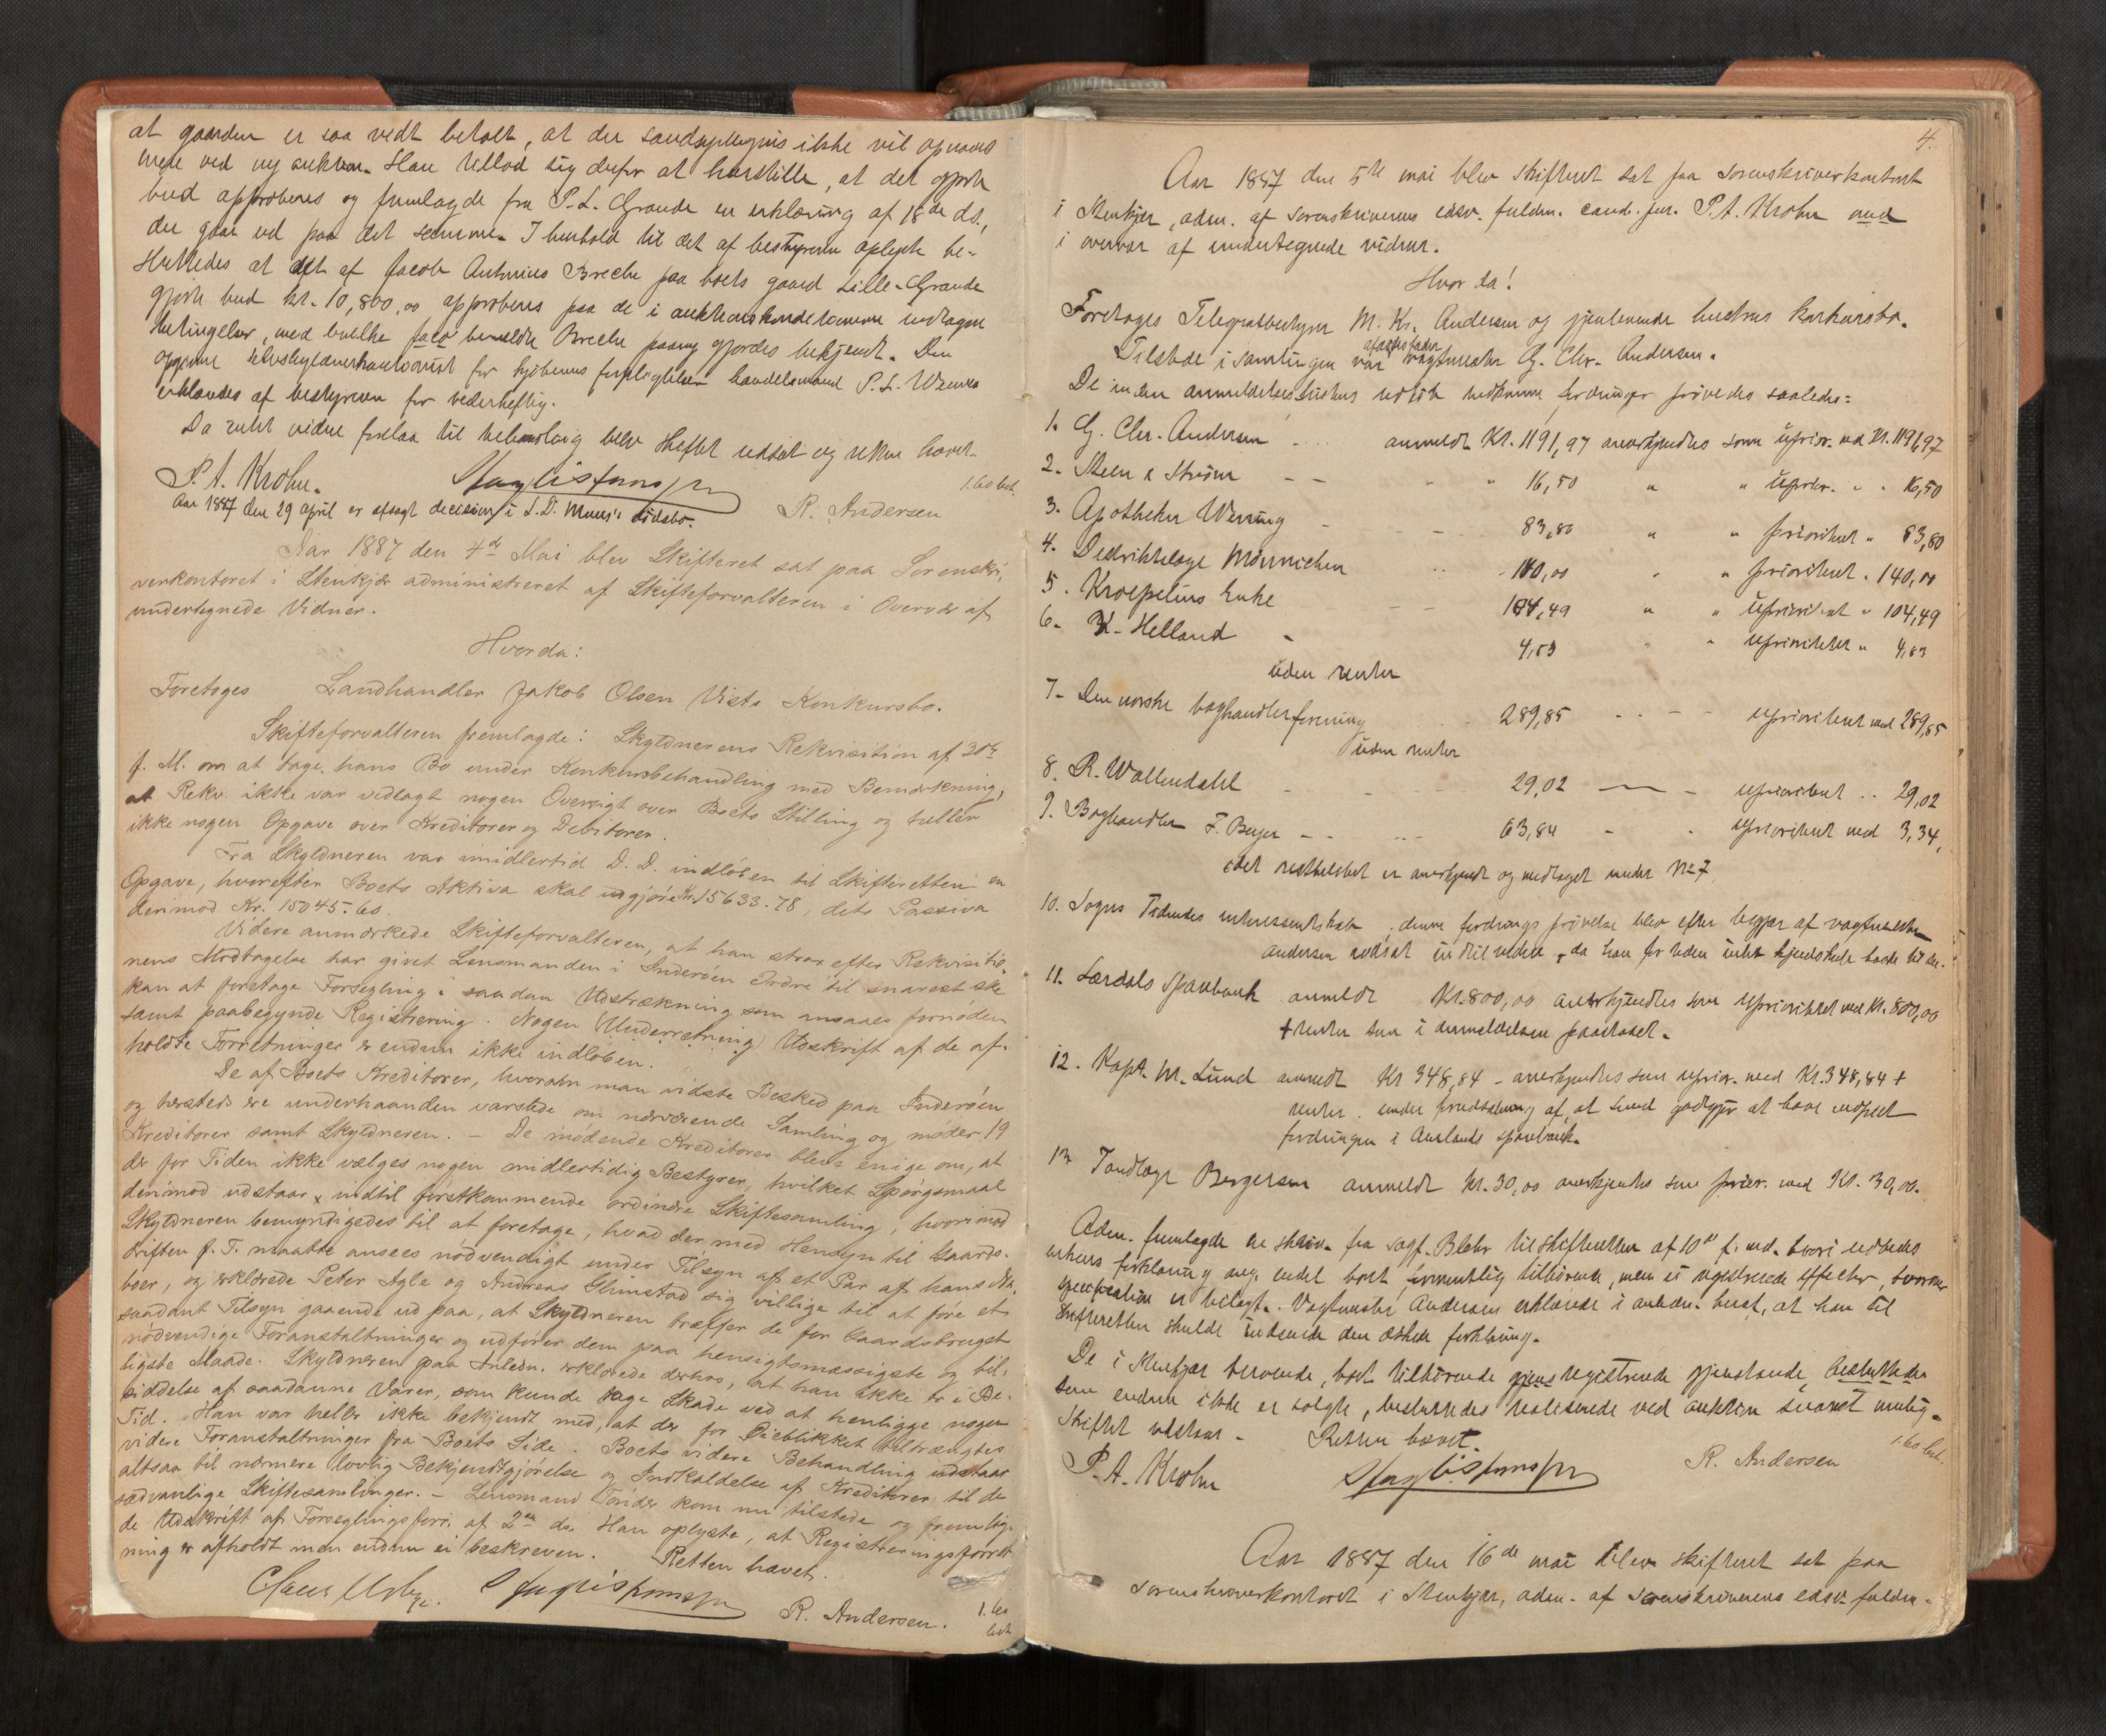 at gaarden er saa vidt betalt, at der sandsynligvis ikke vil opnaaes
mere ved ny auktion. Han tillod sig derfor at henstille, at det gjorte
bud approberes og fremlagde fra P. L. Grande en erklæring af 18de ds.,
der gaar ud paa det samme. I henhold til det af bestyreren oplyste be-
sluttedes at det af Jacob Antonius Breche paa boets gaard Lille-Grande
gjorte bud kr. 10,800,00 approberes paa de i auktionskonditionerne indtagne
betingelser, med hvilke bemeldte Breche paany gjordes bekjendt. Den
opgivne selvskyldnerkautionist for kjøberens forpligtelser handelsmand P. L.
erklæredes af bestyreren for vederheftig.
Da intet videre forelaa til behandling blev skiftet udsat og retten hævet.
P. A. Krohn. R. Andersen 1.60 bet.
Aar 1887 den 29 april er afsagt decision i S. D. Muus's dødsbo.
Aar 1887 den 4de Mai blev Skifteret sat paa Sorenskri-
verkontoret i Stenkjær administreret af Skifteforvalteren i Overvær af
undertegnede Vidner.
Hvorda:
Foretoges Landhandler Jakob Olsen Vists Konkursbo.
Skifteforvalteren fremlagde: Skyldnerens Rekvisition af 30te
f. M. om at tage hans Bo under Konkursbehandling med Bemærkning,
at Rekv. ikke var vedlagt nogen Oversigt over Boets Stilling og heller
ikke nogen Opgave over Kreditorer og Debitorer.
Fra Skyldneren var imidlertid D. D. indløben til Skifteretten en
Opgave, hvorefter Boets Aktiva skal udgjøre Kr. 15633.78, dets Passiva
derimod Kr. 15045.60.
Videre anmærkede Skifteforvalteren, at han strax efter Rekvisitio-
nens Modtagelse har givet Lensmanden i Inderøen Ordre til snarest ske
kan at foretage Forsegling i saadan Udstrækning som ansaaes fornøden
samt paabegynde Registrering. Nogen (Underretning) Udskrift af de af-
holdte Forretninger er endnu ikke indløben.
De af Boets Kreditorer, hvorom man vidste Besked paa Inderøen
og herstedes ere underhaanden varslede om nærværende Samling og møder 19
Kreditorer samt Skyldneren. – De mødende Kreditorer bleve enige om, at
der for Tiden ikke vælges nogen midlertidig Bestyrer, hvilket Spørgsmaal
derimod udstaar indtil førstkommende ordinære Skiftesamling, hvorimod
Skyldneren bemyndigedes til at foretage, hvad der med Hensyn til Gaards-
driften f. T. maatte ansees nødvendigt under Tilsyn af et Par af hans Na-
boer, og erklærede Peter Agle og Andreas Glimstad sig villige til at føre et
saadant Tilsyn gaaende ud paa, at Skyldneren træffer de for Gaardsbruget
nødvendige Foranstaltninger og udfører dem paa hensigtsmæssigste og bil-
ligste Maade. Skyldneren paa Anledn. erklærede derhos, at han ikke er i Be-
siddelse af saadanne Varer, som kunde tage Skade ved at henligge nogen
Tid. Han var heller ikke bekjendt med, at der for Øieblikket tiltrængtes
videre Foranstaltninger fra Boets Side. Boets videre Behandling udstaar
altsaa til nærmere lovlig Bekjendtgjørelse og Indkaldelse af Kreditorer til de
sædvanlige Skiftesamlinger. – Lensmand kom nu tilstede og fremlag-
de Udskrift af Forseglingsforr. af 2den ds. Han oplyste, at Registreringsforret-
ning er afholdt men endnu ei beskreven. Retten hævet.
R. Andersen. 1.60 bet.
4.
Aar 1887 den 5te mai blev skifteret sat paa sorenskriverkontoret
i Stenkjær, adm. af sorenskriverens edsv. fuldm. cand. jur. P. A. Krohn med
i overvær af undertegnede vidner.
Hvor da!
Foretoges Telegrafbestyrer M. Kr. Andersen og gjenlevende hustrus konkursbo.
Tilstede i samlingen var vagtmester G. Chr. Andersen.
De inden anmeldelsesfristens udløb indkomne fordringer prøvedes saaledes:
1. G. Chr. Andersen anmeldt Kr. 1191,97 anerkjendtes som uprior. ved Kr. 1191,97
2. Steen & Strøm – – " " 16,50 " " uprior. " " 16,50
3. Apotheker Werring – – 83,80 " " prioritert " 83,80
4. Distriktslæge Münnichen 140,00 " " prioritert " 140,00
5. Kroepelins Enke – – 104,49 " " uprioritert " 104,49
6. K. Helland – 4,83 " " uprioriteret " 4,83
uden renter
7. Den norske boghandlerforening 289,85 uprioritert med 289,85
uden renter
8. R. Wallendahl 29,02 – uprioritert " 29,02
9. Boghandler F. Beyer 63,84 – uprioritert med 3,34,
idet restbeløbet er anerkjendt og medtaget under No 7
10. Sogns Tidendes interessentskab, denne fordrings prøvelse blev efter begjær af vagtmester
Andersen udsat indtil videre, da han for tiden intet kjendskab havde til den.
11. Lærdals Sparebank anmeldt Kr. 800,00 anerkjendtes som uprioritert med Kr. 800,00
+ renter som i anmeldelsen paastaaet.
12. Kapt. M. Lund anmeldt Kr 348,84 – anerkjendtes som uprior. med Kr. 348,84 +
renter under forudsætning af, at Lund godtgjør at have indfriet
fordringen i Aurlands sparebank.
13 Tandlæge Bergersen anmeldt Kr. 30,00 anerkjendtes som prior. med Kr. 30,00.
Adm. fremlagde en skriv. fra sagf. Blehr til skifteretten af 10de f. md. hvori udbedes
enkens forklaring ang. endel boet formentlig tilhørende, men ei registrerede effekter, hvorover
specifikation er bilagt. Vagtmester Andersen erklærede i anledn. heraf, at han til
skifteretten skulde indsende den æskede forklaring.
De i Stenkjær beroende, boet tilhørende gjens registrerede gjenstande, besluttedes
som endnu ikke er solgte, besluttedes realiserede ved auktion snarest mulig.
Skiftet udstaar. – Retten hævet.
P. A. Krohn R. Andersen 1.60 bet.
Aar 1887 den 16de mai blev skifteret sat paa
sorenskriverkontoret i Stenkjær, adm. af sorenskriverens edsv. fuldm.